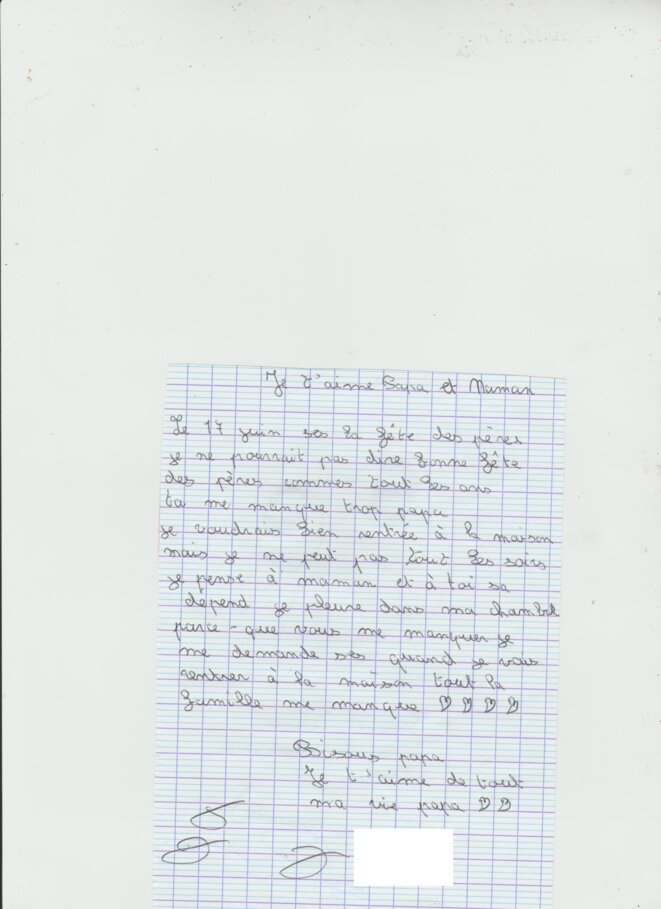 Je t'aime Papa et Maman
Le 17 juin ses la fête des pères
je ne pourrait pas dire bonne fête
des pères commes tout les ans
ta me manque trop papa
je voudrais bien rentrée à la maison
mais je ne peut pas tout les soirs
je pense à maman et à toi sa
dépend je pleure dans ma chambre
parce-que vous me manquer je
me demande ses quand je vais
rentrer à la maison tout la
famille me manque ♡ ♡ ♡ ♡
Bisous papa
Je t'aime de tout
ma vie papa ♡ ♡